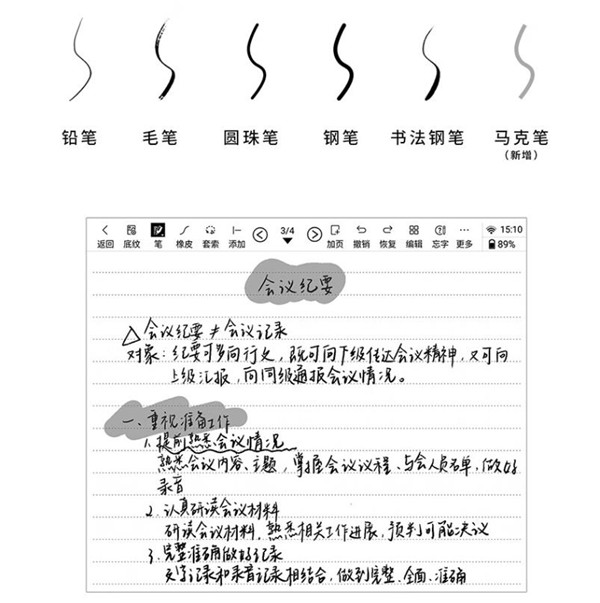 铅笔 毛笔 圆珠笔 钢笔 书法钢笔 马克笔
(新增)
返回 底纹 笔 橡皮 套索 添加 3/4 加页 撤销 恢复 编辑 忘字 更多 15:10 89%
会议纪要
会议纪要≠会议记录
对象:纪要可多向行文,既可向下级传达会议精神,又可向
上级汇报,向同级通报会议情况。
一、重视准备工作
1.提前熟悉会议情况
熟悉会议内容、主题,掌握会议议程、与会人员名单,做好
录音
2.认真研读会议材料
研读会议材料,熟悉相关工作进展,预判可能决议
3.完整准确做好记录
文字记录和录音记录相结合,做到完整、全面、准确